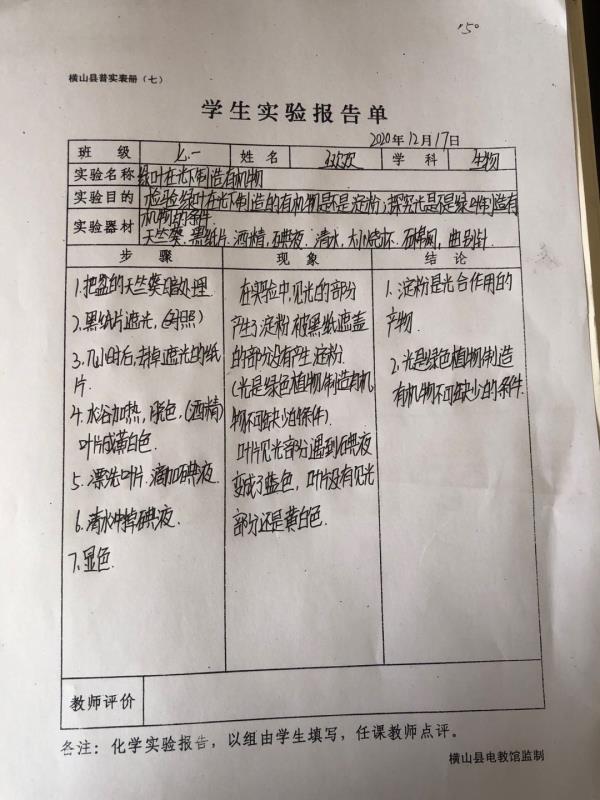 150
横山县普实表册（七）
学生实验报告单
2020年12月17日
班 级 七.一 姓 名 欢欢 学 科 生物
实验名称 绿叶在光下制造有机物
实验目的 检验绿叶在光下制造的有机物是不是淀粉；探究光是不是绿叶制造有
机物的条件.
实验器材 天竺葵、黑纸片、酒精、碘液、清水、大小烧杯、石棉网、曲别针.
步 骤 现 象 结 论
1.把盆的天竺葵暗处理.
2.黑纸片遮光,(对照)
3.几小时后,去掉遮光的纸
片.
4.水浴加热,脱色,(酒精)
叶片成黄白色.
5.漂洗叶片.滴加碘液.
6.清水冲掉碘液.
7.显色.
在实验中,见光的部分
产生了淀粉被黑纸遮盖
的部分没有产生淀粉.
(光是绿色植物制造有机
物不可缺少的条件).
叶片见光部分遇到碘液
变成了蓝色,叶片没有见光
部分还是黄白色.
1.淀粉是光合作用的
产物.
2.光是绿色植物制造
有机物不可缺少的条件.
教师评价
各注：化学实验报告，以组由学生填写，任课教师点评。
横山县电教馆监制